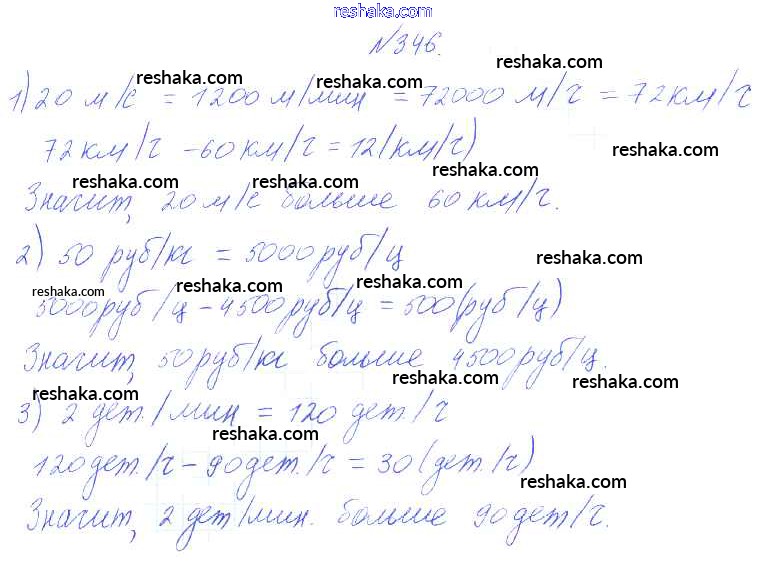 reshaka.com
№346.
reshaka.com
reshaka.com reshaka.com
1) 20 м/с = 1200 м/мин = 72000 м/ч = 72 км/ч
reshaka.com
72 км/ч - 60 км/ч = 12 (км/ч)
reshaka.com
reshaka.com reshaka.com
Значит, 20 м/с больше 60 км/ч.
reshaka.com
2) 50 руб/кг = 5000 руб/ц
reshaka.com
reshaka.com reshaka.com reshaka.com
5000 руб/ц - 4500 руб/ц = 500 (руб/ц)
reshaka.com
Значит, 50 руб/кг больше 4500 руб/ц.
reshaka.com reshaka.com
reshaka.com
3) 2 дет./мин = 120 дет./ч
reshaka.com reshaka.com
120 дет./ч - 90 дет./ч = 30 (дет./ч)
reshaka.com
reshaka.com
Значит, 2 дет/мин. больше 90 дет/ч.